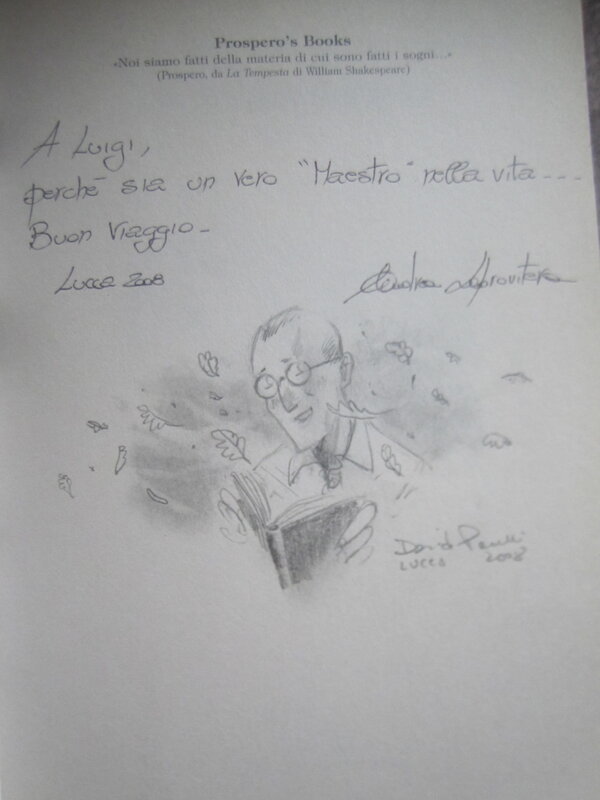 Prospero's Books
«Noi siamo fatti della materia di cui sono fatti i sogni...»
(Prospero, da La Tempesta di William Shakespeare)
A Luigi,
perché sia un vero "Maestro" nella vita...
Buon Viaggio-
Lucca 2008
Andrea Laprovitera
Davide
Lucca 2008